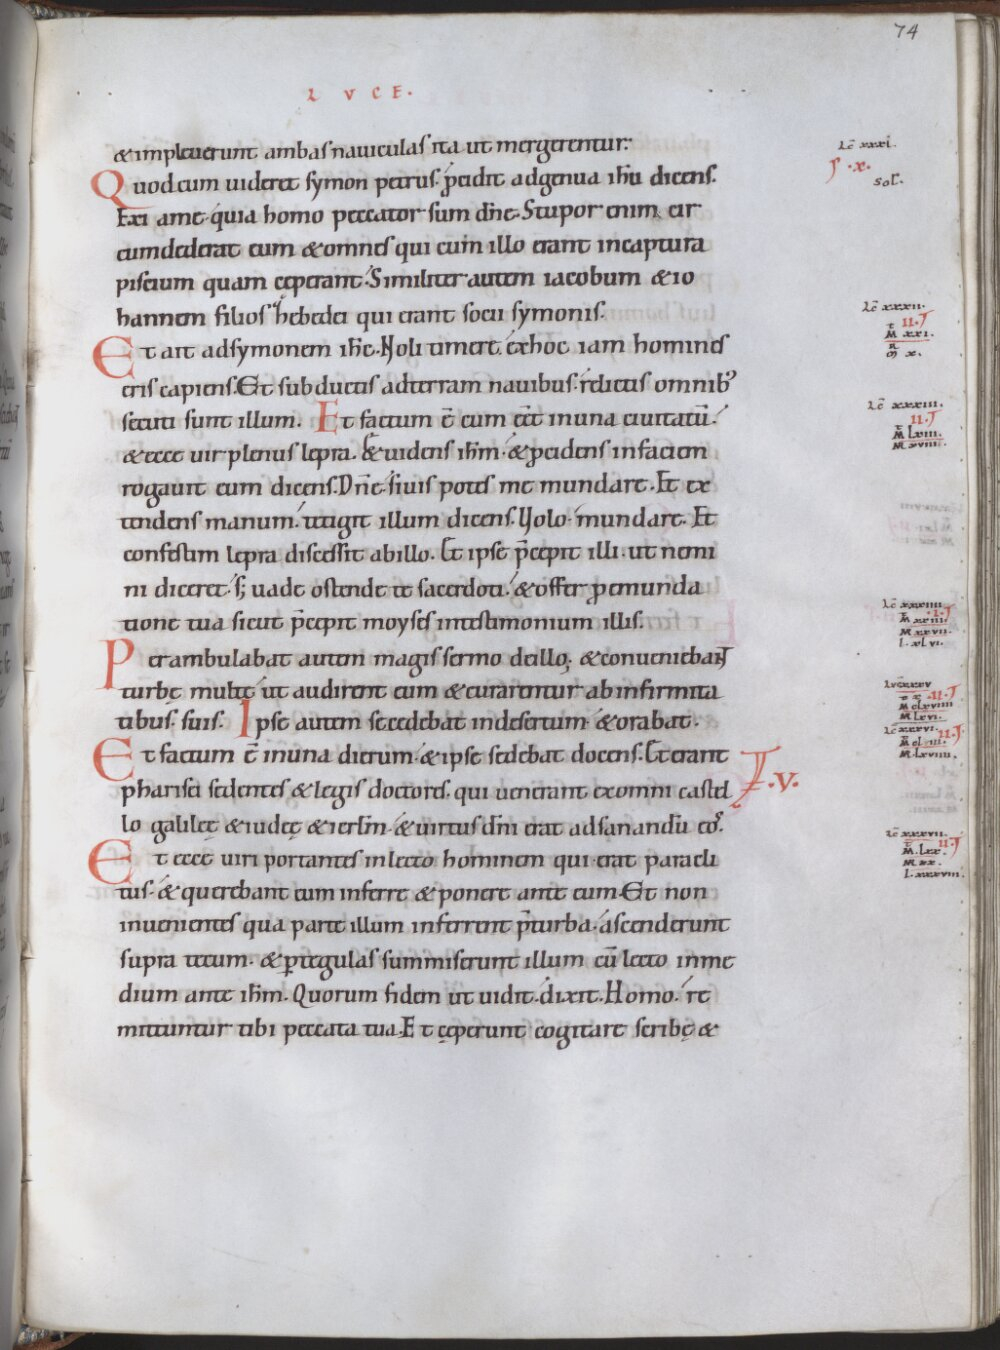 74
LVCE.
& impleuerunt ambas nauiculas ita ut mergerentur.
Quod cum uideret symon petrus. p̄cidit ad genua ih̄u dicens.
Exi a me. quia homo peccator sum dn̄e. Stupor enim cir
cumdederat eum & omnes qui cum illo erant in captura
piscium quam cęperant. Similiter autem iacobum & io
hannem filios hebedei qui erant socii symonis.
Et ait ad symonem ih̄c. Noli timere. ex hoc iam homines
eris capiens. Et subductis ad terram nauibus. relictis omnib'
secuti sunt illum. Et factum ē cum eēt in una ciuitatū.
& ecce uir plenus lepra. & uidens ih̄m. & pcidens in faciem
rogauit eum dicens. Dn̄e. si uis potes me mundare. Et ex
tendens manum. tetigit illum dicens. Uolo. mundare. Et
confestim lepra discessit ab illo. Et ipse p̄cepit illi. ut nemi
ni diceret. s; uade ostende te sacerdoti. & offer p emunda
tione tua sicut p̄cepit moyses in testimonium illis.
Perambulabat autem magis sermo de illo; & conueniebant
turbę multę ut audirent eum & curarentur ab infirmita
tibus. suis. Ipse autem secedebat in desertum. & orabat.
Et factum ē in una dierum. & ipse sedebat docens. Et erant
pharisei sedentes & legis doctores. qui uenerant ex omni castel
lo galileę & iudeę & ierlm̄. & uirtus dn̄i erat ad sanandū eos.
.V.
Et ecce uiri portantes in lecto hominem qui erat paraeli
tus. & querebant eum inferre & ponere ante eum. Et non
inuenientes qua parte illum inferrent p̄ turba. ascenderunt
supra tectum. & p tegulas summiserunt illum cū lecto in me
dium ante ih̄m. Quorum fidem ut uidit. dixit. Homo. re
mittuntur tibi peccata tua. Et cęperunt cogitare scribę &
Lc̄ xxxi.
.x.
Sol'.
Lc̄ xxxii.
II.
M xxi.
x.
Lc̄ xxxiii.
II.
M Lxiii.
M xviii.
Lc̄ xxxiiii.
.I.
M xxvii.
I. xLvi.
Luc xxxv
.II.
M cLxviiii
M Lxvi.
Lc̄ xxxvi.
II.
M Lxviii.
Lc̄ xxxvii.
II.
M. Lxx.
M xx.
I. xxxviii.